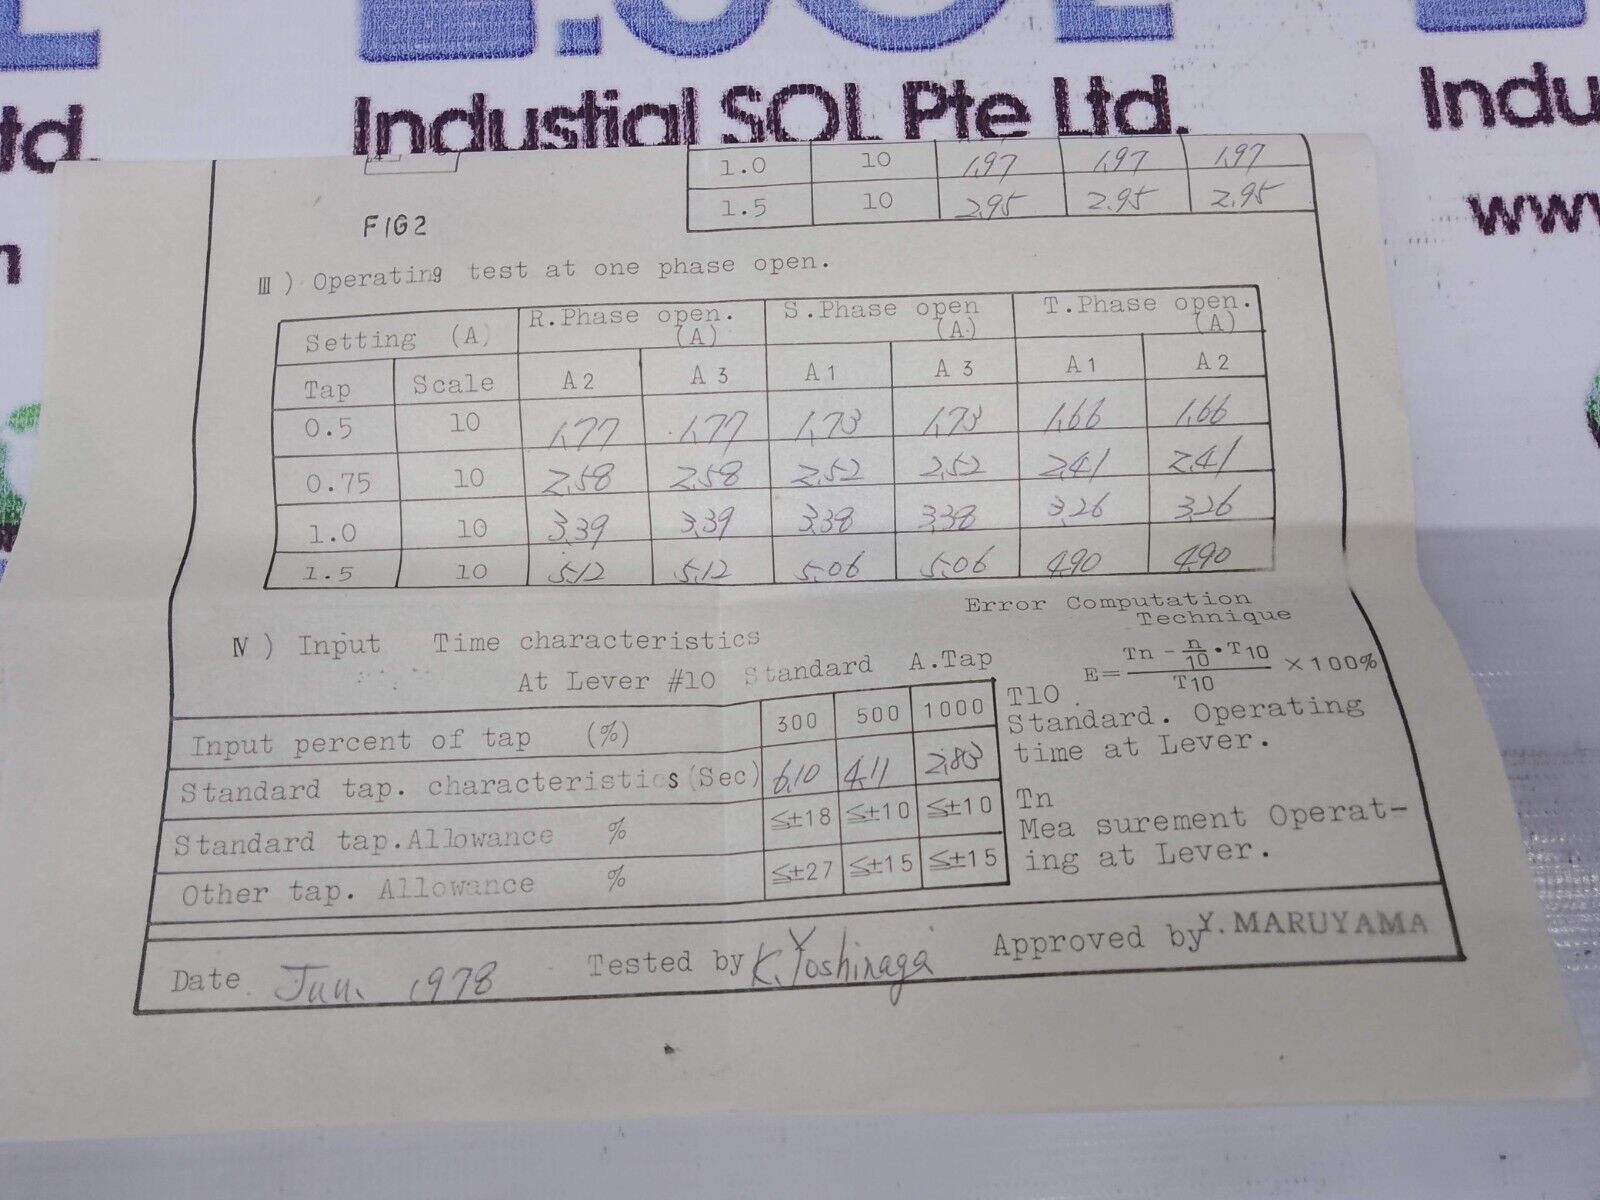 Industial SOL Pte Ltd.
Indu
td.
www
1.0 10 1.97 1.97 1.97
1.5 10 2.95 2.95 2.95
FIG2
Ⅲ) Operating test at one phase open.
Setting (A) R.Phase open. (A) S.Phase open (A) T.Phase open. (A)
Tap Scale A2 A3 A1 A3 A1 A2
0.5 10 1.77 1.77 1.73 1.73 1.66 1.66
0.75 10 2.58 2.58 2.52 2.52 2.41 2.41
1.0 10 3.39 3.39 3.38 3.38 3.26 3.26
1.5 10 5.12 5.12 5.06 5.06 4.90 4.90
Error Computation
Technique
Ⅳ) Input Time characteristics
At Lever #10 Standard A.Tap
E= Tn - n/10 • T10 / T10 ×100%
Input percent of tap (%) 300 500 1000
Standard tap. characteristics (Sec) 6.10 4.11 2.83
Standard tap. Allowance % ≦±18 ≦±10 ≦±10
Other tap. Allowance % ≦±27 ≦±15 ≦±15
T10
Standard. Operating
time at Lever.
Tn
Mea surement Operat-
ing at Lever.
Date Jun. 1978 Tested by K.Yoshinaga Approved by Y. MARUYAMA